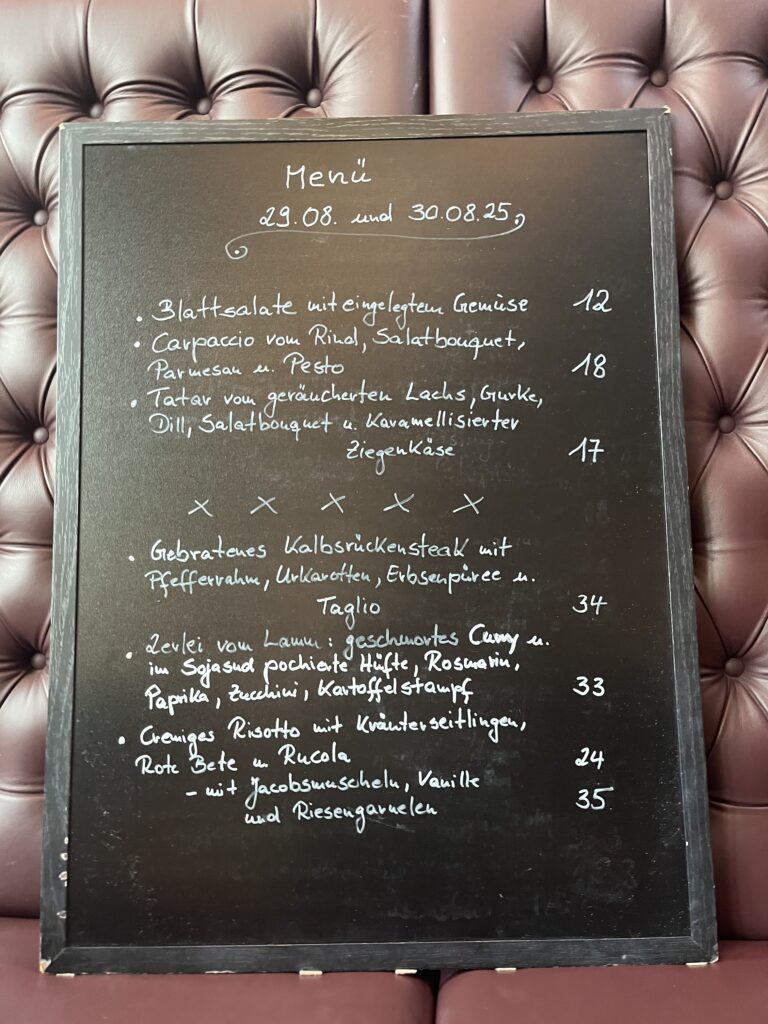 Menü
29.08. und 30.08.25
• Blattsalate mit eingelegtem Gemüse 12
• Carpaccio vom Rind, Salatbouquet,
Parmesan u. Pesto 18
• Tatar vom geräucherten Lachs, Gurke,
Dill, Salatbouquet u. Karamellisierter
Ziegenkäse 17
x x x x x
• Gebratenes Kalbsrückensteak mit
Pfefferrahm, Urkarotten, Erbsenpüree u.
Taglio 34
• 2erlei vom Lamm: geschmortes Curry u.
im Sojasud pochierte Hüfte, Rosmarin,
Paprika, Zucchini, Kartoffelstampf 33
• Cremiges Risotto mit Kräuterseitlingen,
Rote Bete u Rucola 24
- mit Jacobsmuscheln, Vanille
und Riesengarnelen 35